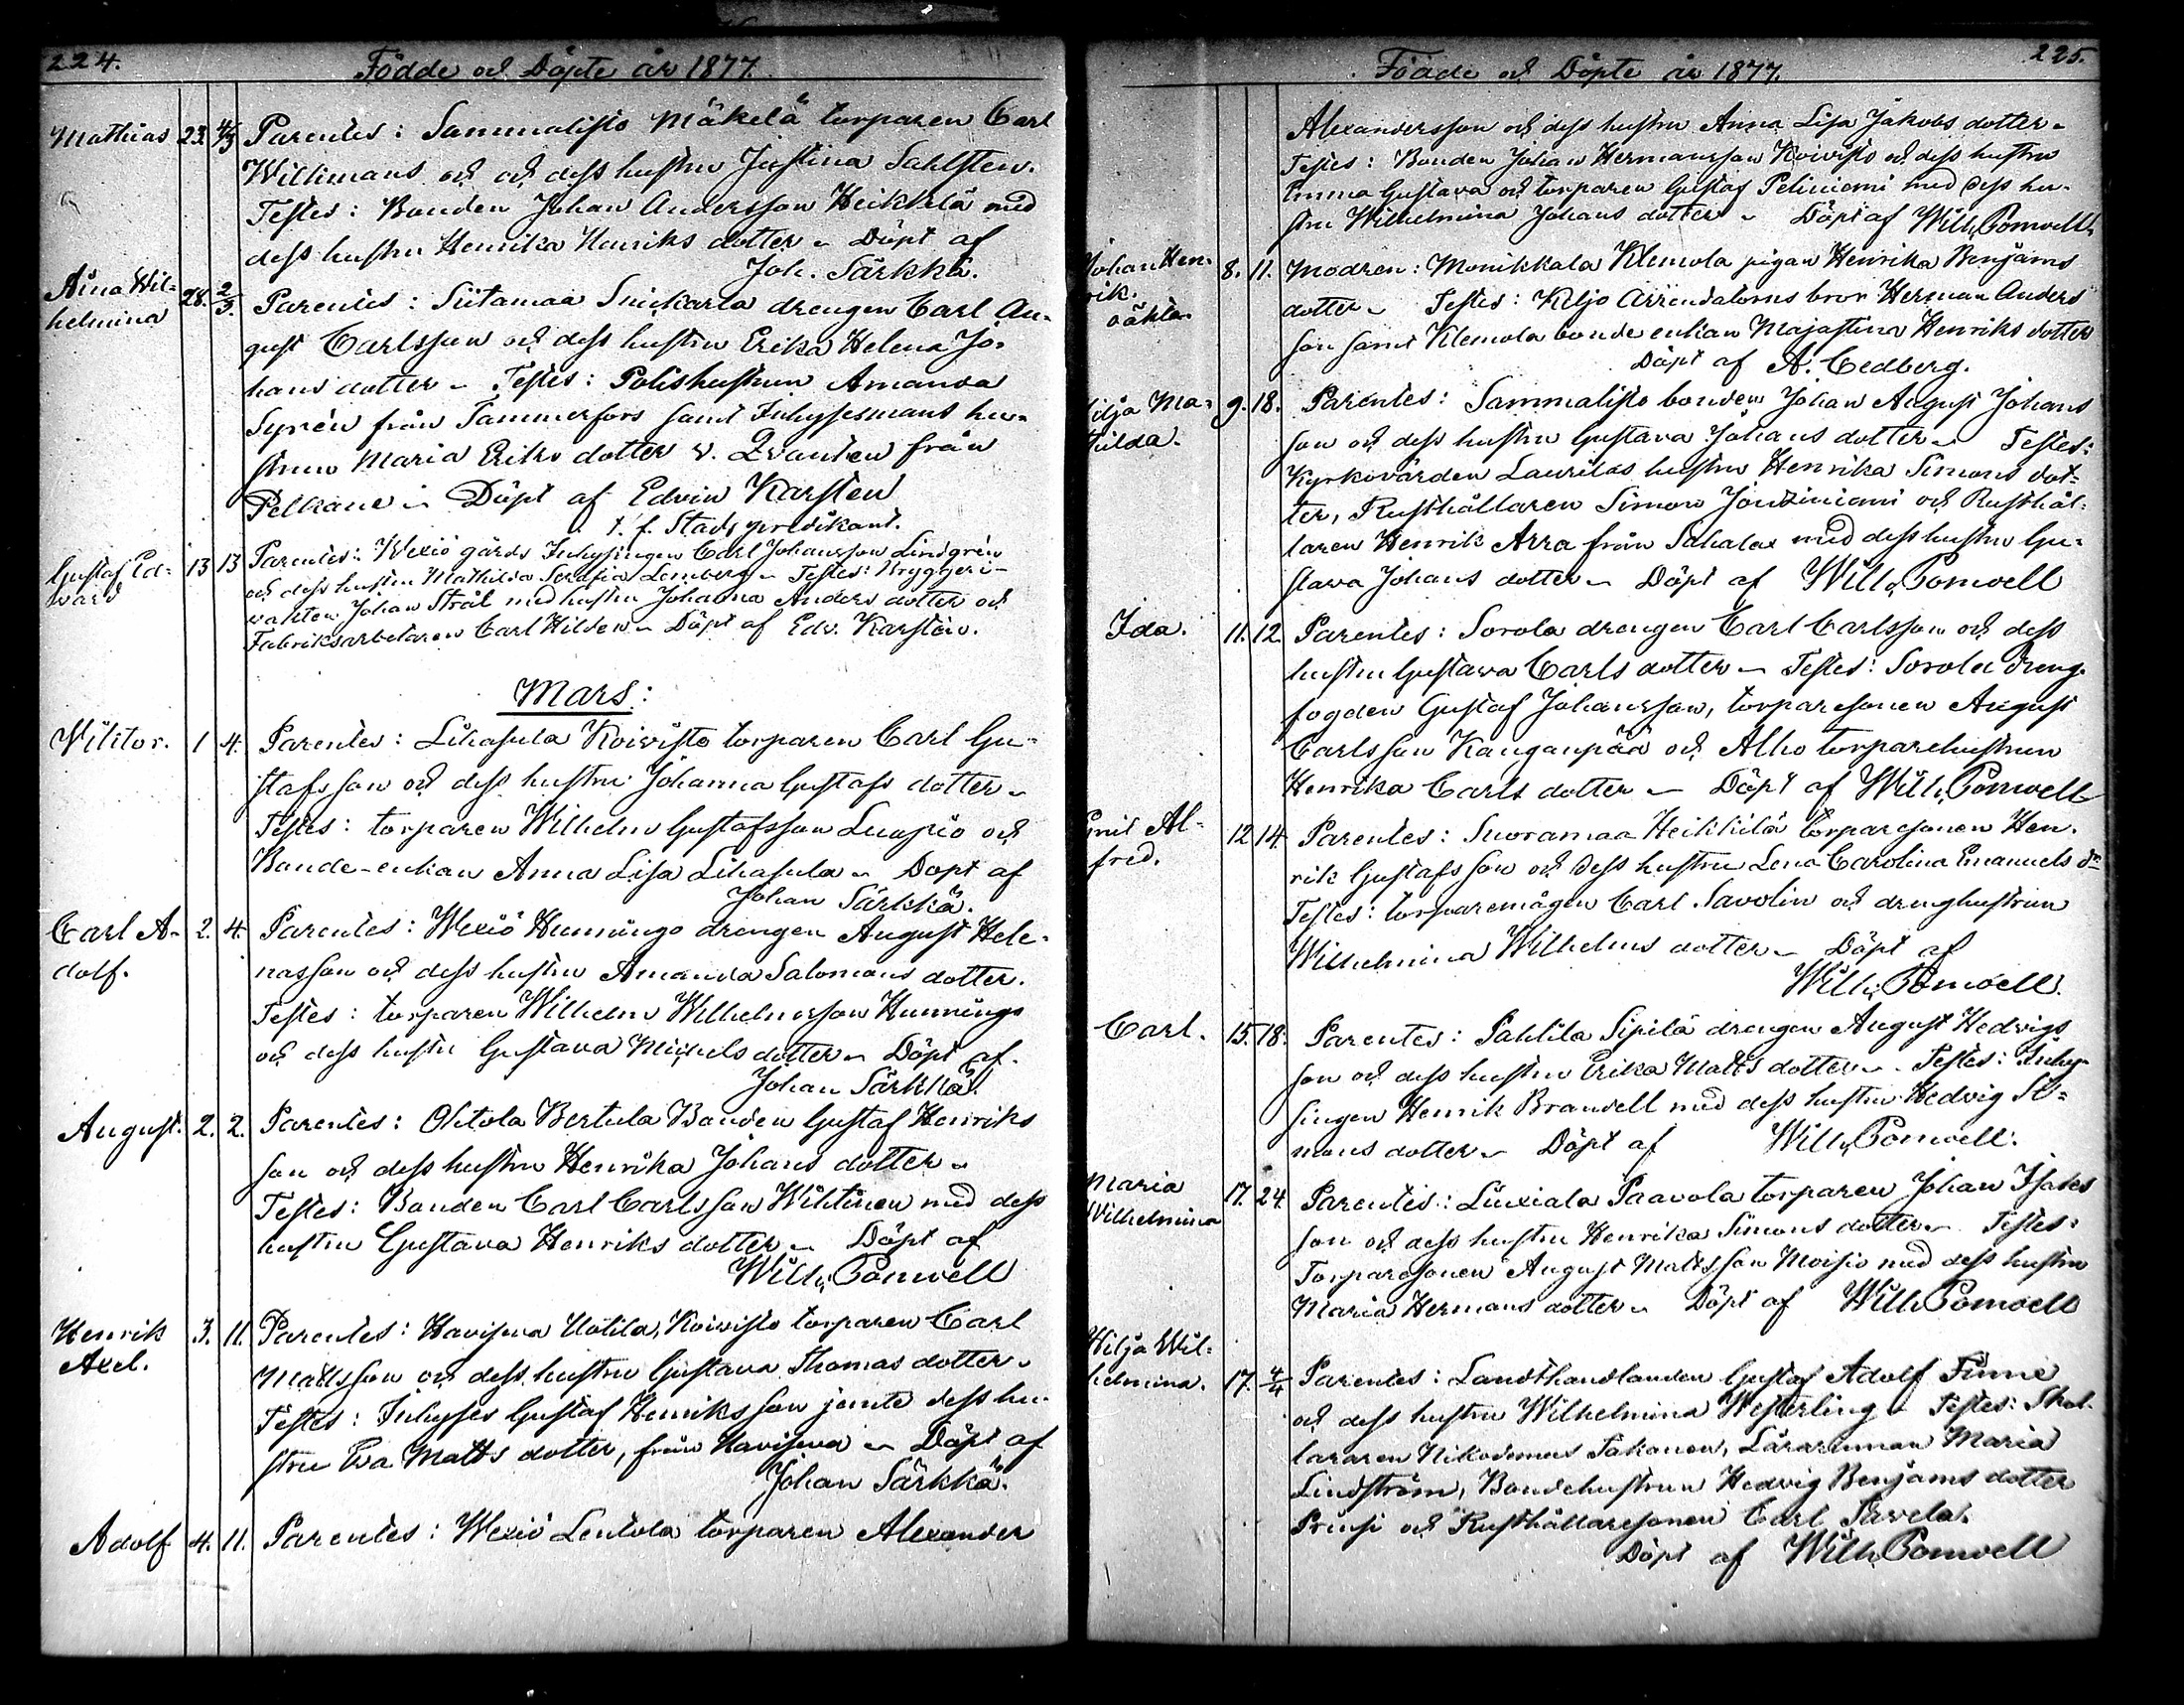 224.
Födde och Döpte år 1877.
Mathias 23. 4/3 Parentes: Sammalisto Mäkelä torparen Carl
Willimans och och dess hustru Justina Sahlsten.
Testes: Bonden Johan Andersson Heikkilä med
dess hustru Henrika Henriks dotter ~ Döpt af
Joh. Särkkä.
Aina Wil-
helmina 28. 2/3. Parentes: Siitamaa Snickarla drengen Carl Au-
gust Carlsson och dess hustru Erika Helena Jo-
hans dotter ~ Testes: Polishustrun Amanda
Syrén från Tammerfors samt Inhysesmans hu-
strun Maria Eriks dotter v. Qvanten från
Pelkäne ~ Döpt af Edvin Karsten
t. f. Stadspredikant.
Gustaf Ed-
vard 13 13 Parentes: Wexiö gårds Inhysingen Carl Johansson Lindgrén
och dess hustru Mathilda Serafia Lemberg ~ Testes: Bryggeri-
vakten Johan Strål med hustru Johanna Anders dotter och
Fabriksarbetaren Carl Hilden ~ Döpt af Edv. Karstén.
Mars:
Wiktor. 1 4. Parentes: Lihasula Koivisto torparen Carl Gu-
stafsson och dess hustru Johanna Gustafs dotter ~
Testes: torparen Wilhelm Gustafsson Luopio och
Bonde-enkan Anna Lisa Lihasula ~ Döpt af
Johan Särkkä.
Carl A-
dolf. 2. 4. Parentes: Wexiö Hunningo drengen August Hele-
nasson och dess hustru Amanda Salomons dotter.
Testes: torparen Wilhelm Wilhelmsson Hunningo
och dess hustru Gustava Michels dotter ~ Döpt af
Johan Särkkä.
August. 2. 2. Parentes: Ohtola Bertula Bonden Gustaf Henriks
son och dess hustru Henrika Johans dotter ~
Testes: Bonden Carl Carlsson Wihtinen med dess
hustru Gustava Henriks dotter ~ Döpt af
Wilh. Ponwell
Henrik
Axel. 3. 11. Parentes: Havisewa Uotila, Koivisto torparen Carl
Mattsson och dess hustru Gustava Thomas dotter ~
Testes: Inhyses Gustaf Henriksson jemte dess hu-
stru Eva Matts dotter, från Havisewa ~ Döpt af
Johan Särkkä.
Adolf 4. 11. Parentes: Wexiö Lentola torparen Alexander
225.
Födde och Döpte år 1877.
Alexandersson och dess hustru Anna Lisa Jakobs dotter ~
Testes: Bonden Johan Hermansson Koivisto och dess hustru
Emma Gustava och torparen Gustaf Peliniemi med dess hu-
stru Wilhelmina Johans dotter ~ Döpt af Wilh. Ponwell
Johan Hen-
rik.
oäkta. 8. 11. Modren: Monikkala Klemola pigan Henrika Benjams
dotter ~ Testes: Keljo Arrendatorns bror Herman Anders
son samt Klemola bonde enkan Majastina Henriks dotter
Döpt af A. Cedberg.
Hilja Ma-
thilda. 9. 18. Parentes: Sammalisto bonden Johan August Johans
son och dess hustru Gustava Johans dotter ~ Testes:
Kyrkovärden Laurilas hustru Henrika Simons dot-
ter, Rusthållaren Simon Jontziniemi och Rusthål-
laren Henrik Arra från Sahalax med dess hustru Gu-
stava Johans dotter ~ Döpt af Wilh. Ponwell
Ida. 11. 12. Parentes: Sorola drengen Carl Carlsson och dess
hustru Gustava Carls dotter ~ Testes: Sorola dreng-
fogden Gustaf Johansson, torparesonen August
Carlsson Kauganpää och Alho torparehustrun
Henrika Carls dotter ~ Döpt af Wilh. Ponwell
Emil Al-
fred. 12 14. Parentes: Suoramaa Heikkilä torparesonen Hen-
rik Gustafsson och dess hustru Lena Carolina Emanuels dr
Testes: torparemågen Carl Savolin och drenghustrun
Wilhelmina Wilhelms dotter ~ Döpt af
Wilh. Ponwell.
Carl. 15. 18. Parentes: Pahlila Sipilä drengen August Hedvigs
son och dess hustru Erika Matts dotter ~ Testes: Inhy-
singen Henrik Brandell med dess hustru Hedvig Si-
mons dotter ~ Döpt af Wilh. Ponwell.
Maria
Wilhelmina 17. 24. Parentes: Liuxiala Paavola torparen Johan Isaks
son och dess hustru Henrika Simons dotter ~ Testes:
Torparesonen August Mattsson Moisio med dess hustru
Maria Hermans dotter ~ Döpt af Wilh. Ponwell
Hilja Wil-
helmina. 17. 4/4 Parentes: Landthandlanden Gustaf Adolf Finne
och dess hustru Wilhelmina Westerling ~ Testes: Skol-
läraren Nikodemus Takanen, Lärarinnan Maria
Lindström, Bondehustrun Hedvig Benjams dotter
Prinsi och Rusthållaresonen Carl Pavela.
Döpt af Wilh. Ponwell